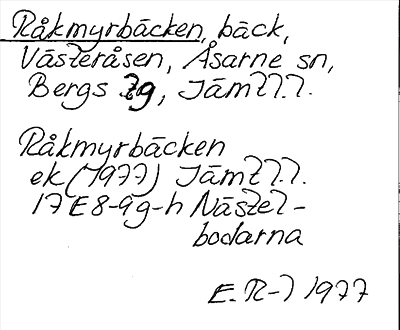 Råkmyrbäcken, bäck,
Västeråsen, Åsarne sn,
Bergs tg, Jämtl.l.
Råkmyrbäcken
ek (1977) Jämtl.l.
17E8-9g-h Nästel-
bodarna
E. R-l 1977